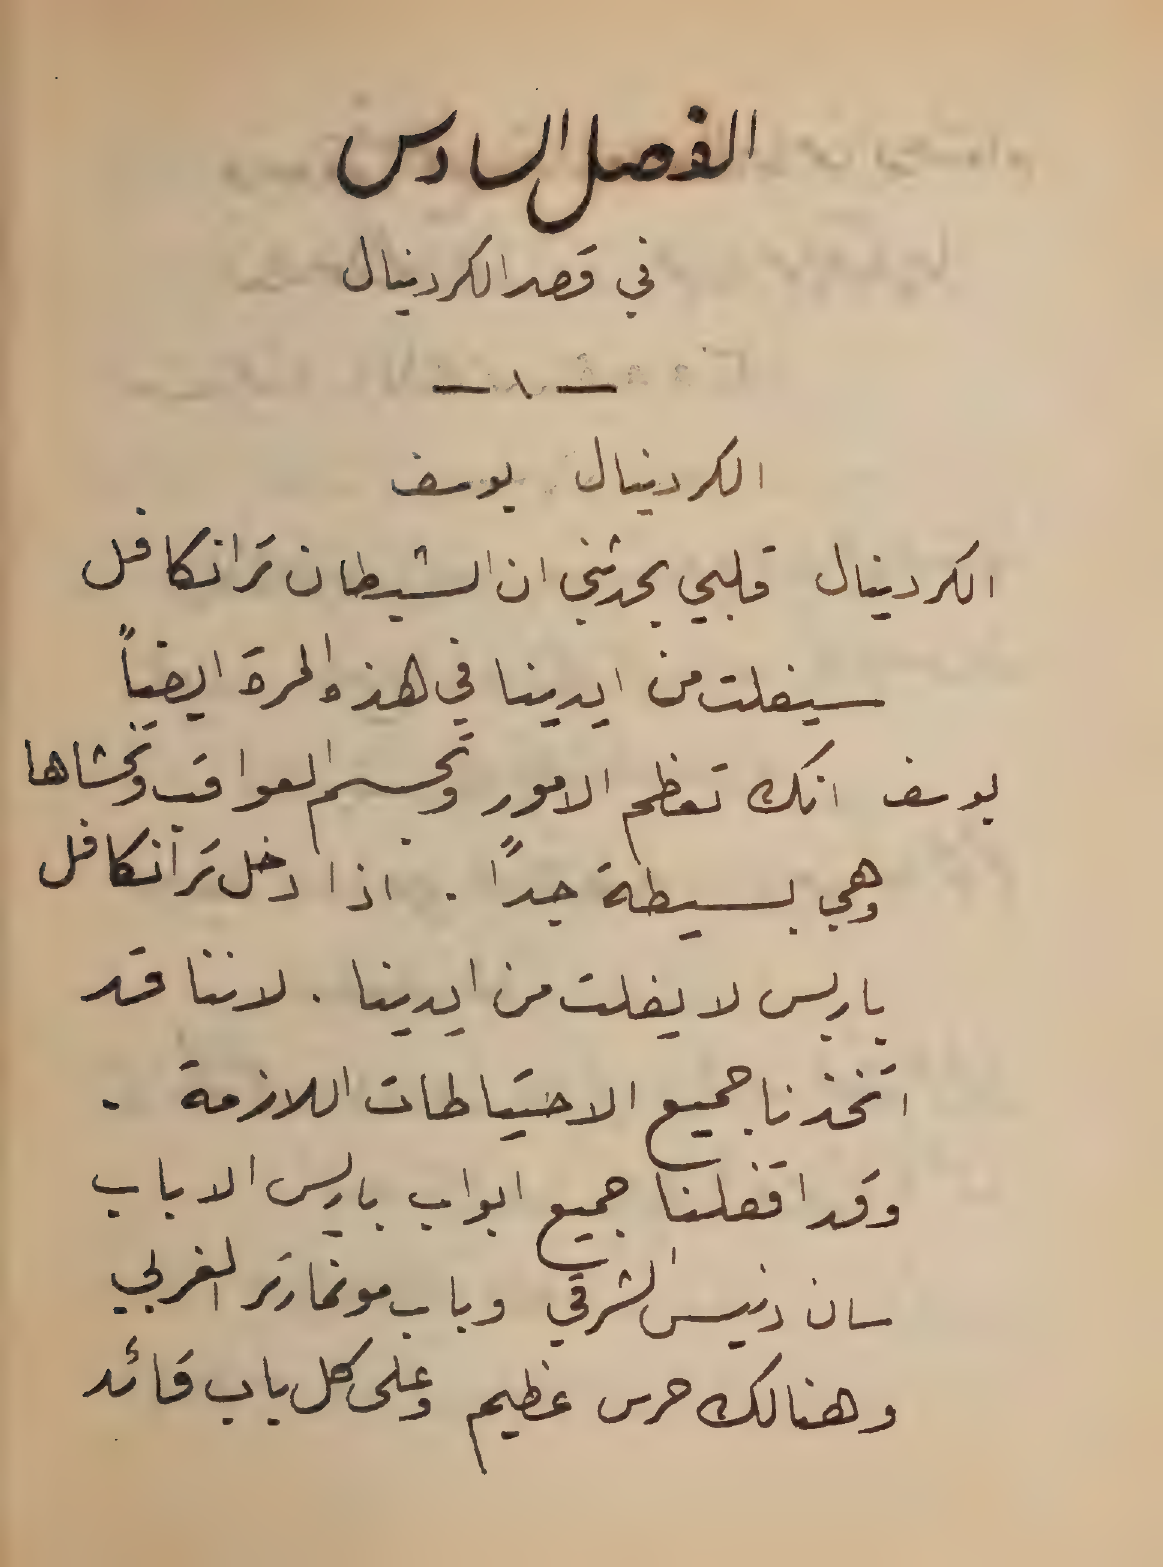 الفصل السادس
في قصر الكردينال
— ٨ —
الكردينال يوسف
الكردينال قلبي يحدثني ان الشيطان ترانكافل
سيفلت من ايدينا في هذه المرة ايضاً
يوسف انك تعظم الامور وتجسم العواقب وتخشاها
وهي بسيطة جداً . اذا دخل ترانكافل
باريس لا يفلت من ايدينا . لاننا قد
اتخذنا جميع الاحتياطات اللازمة .
وقد اقفلنا جميع ابواب باريس الا باب
سان دنيس الشرقي وباب مونمارتر الغربي
وهنالك حرس عظيم وعلى كل باب قائد